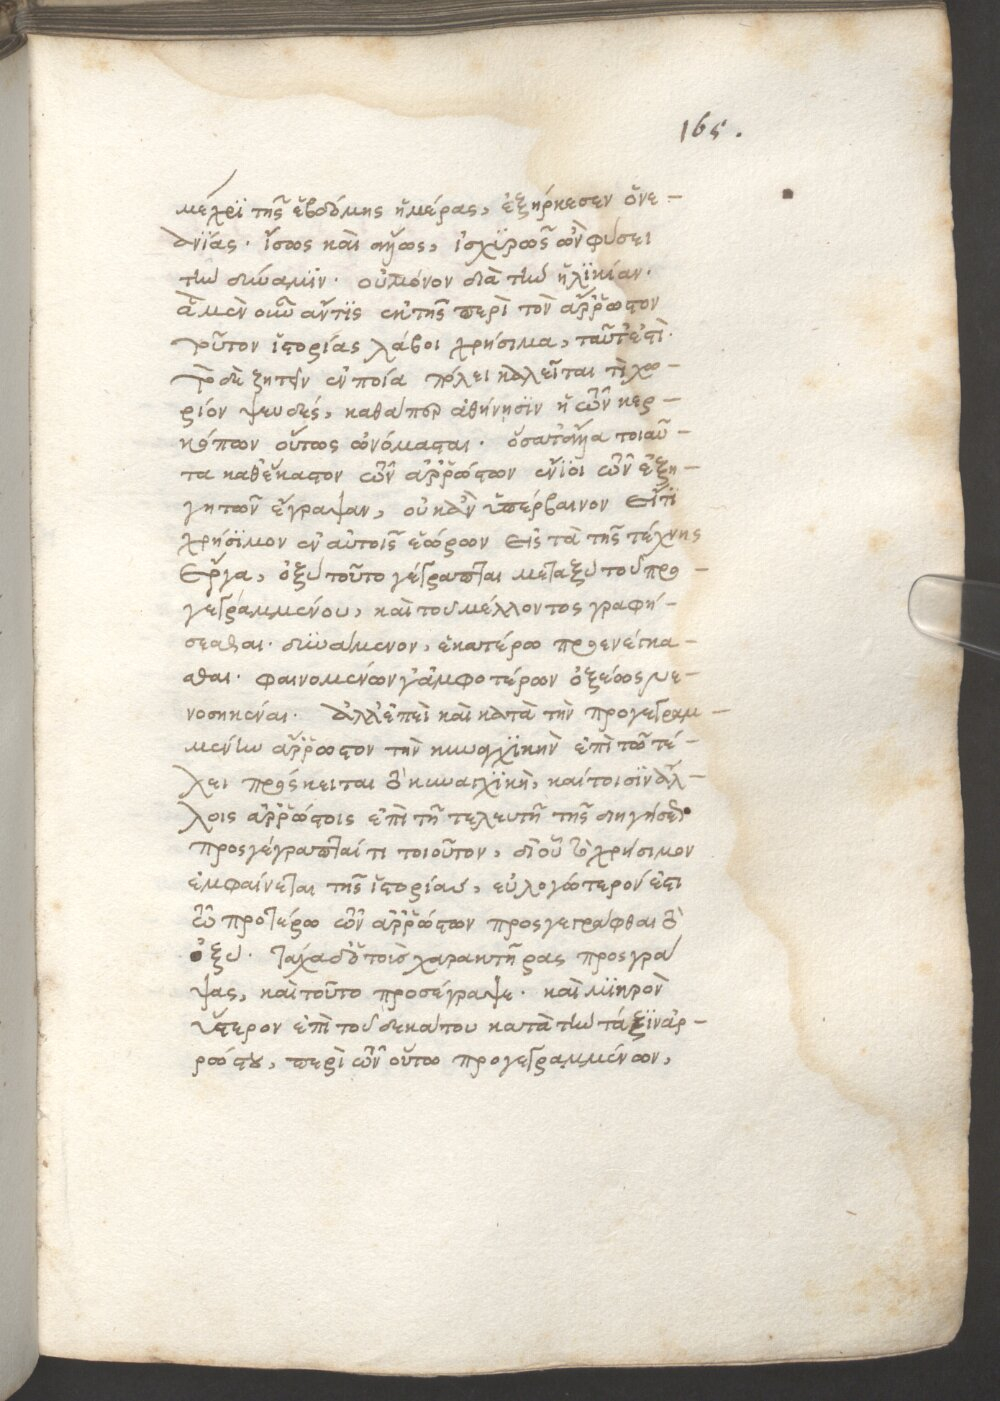 165.
μέχρϊ τῆς ἑβδόμης ἡμέρας, ἐξήρκεσεν ὁ νε-
ανΐας. ἴσως καὶ φύσει
τὴν δύναμϊν. οὐ μόνον διὰ τὴν ἡλϊκίαν.
ἃ μὲν οὖν ἄν τϊς ἐκ τῆς περὶ τὸν ἄῤῥωστον
τοῦτον ἱστορίας λάβοι χρήσιμα, ταῦτ' ἐστί.
τὸ δὲ ζητεῖν ἐν ποία πόλει καλεῖται τὶ χω-
ρίον ψευδές, καθάπερ ἀθήνησϊν ἢ τῶν κερ-
κόπων οὕτως ὠνόμασται. ὅσα τ' ἄλλα τοιαῦ-
τα καθ' ἕκαστον τῶν ἀῤῥώστων ἔνϊοι τῶν ἐξη-
γητῶν ἔγραψαν, οὐκ ἂν ὑπέρβαινον εἴ τϊ
χρήσϊμον ἐν αὐτοῖς ἑώρων εἰς τὰ τῆς τέχνης
ἔργα, ὀξὺ τοῦτο γέγραπται μεταξὺ τοῦ προ-
γεγραμμένου, καὶ τοῦ μέλλοντος γραφή-
σεσθαι. δυνάμενον, ἑκατέρω προσενέγκα-
σθαι. φαινομένων γ' ἀμφοτέρων ὀξέως νε-
νοσηκέναι. ἀλλ' ἐπεὶ καὶ κατὰ τὴν προγεγραμ-
μένην ἄῤῥωστον τὴν κυναγχϊκὴν ἐπὶ τῶ τέ-
λει πρόσκειται τὸ κυναγχϊκὴ, καὶ τοῖσϊν ἄλ-
λοις ἀῤῥώστοις ἐπὶ τῆ τελευτῆ τῆς διηγήσεως
προσγέγραπταί τι τοιοῦτον, δι' οὗ τὸ χρήσιμον
ἐμφαίνεται τῆς ἱστορίας, εὐλογώτερόν ἐστι
τῶ προτέρω τῶν ἀῤῥώστων προσγεγράφθαι τὸ
ὀξύ. τάχα δ' ὁ τοὺς χαρακτῆρας προσγρά
ψας, καὶ τοῦτο προσέγραψε. καὶ μϊκρὸν
ὕστερον ἐπὶ τοῦ δεκάτου κατὰ τὴν τάξϊν ἀρ-
ρώστου, περὶ τῶν οὕτω προγεγραμμένων,